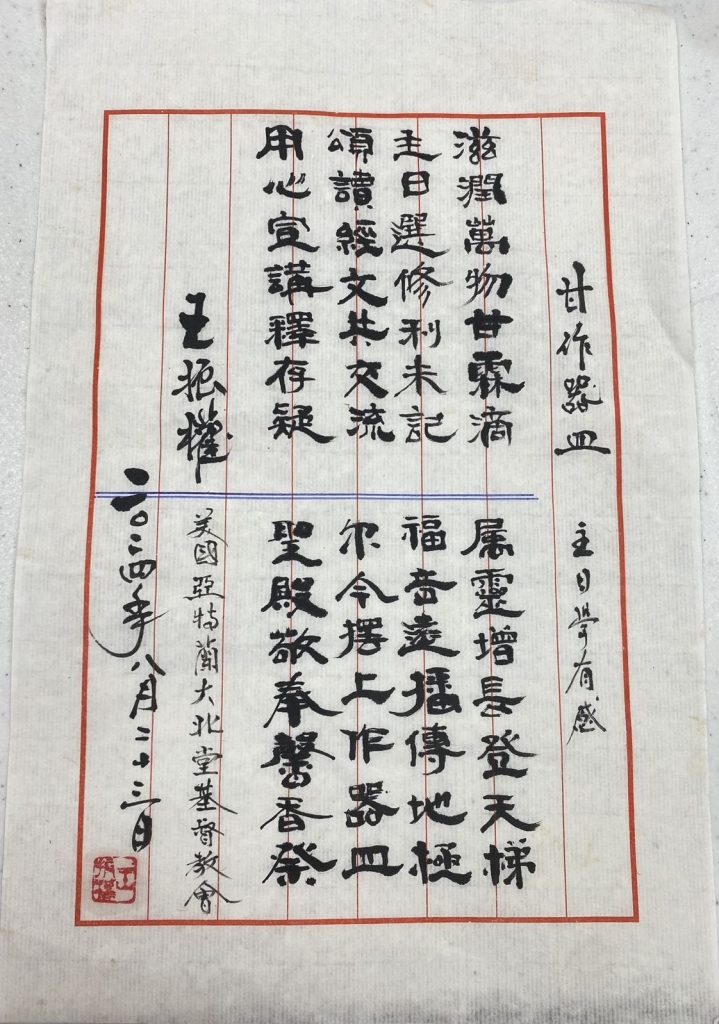 甘作器皿
主日學有感
滋潤萬物甘霖滴
主日選修利未記
頌讀經文共交流
用心宣講釋存疑
属靈增長登天梯
福音遠播傳地極
尔今擺上作器皿
聖殿敬奉馨香祭
王振權
美國亞特蘭大北堂基督教會
二〇二四年八月二十三日